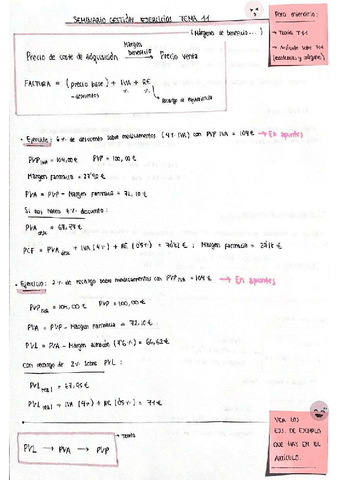 SEMINARIO GESTIÓN EJERCICIOS TEMA 11
(Márgenes de beneficio...)
Precio de coste de adquisición → Margen beneficio → Precio venta
FACTURA = (precio base) + IVA + RE
- descuentos % %
→ Recargo de equivalencia
Para seminario:
→ Teoría T11
→ Artículo sobre T11
• Ejercicio: 6% de descuento sobre medicamentos (4% IVA) con PVP IVA = 104 € → En apuntes
PVP IVA = 104,00 € PVP = 100,00 €
Margen farmacia = 27'90 €
PVA = PVP - Margen farmacia = 72,10 €
Si nos hacen 6% descuento:
PVA desc = 67,77 €
PCF = PVA desc + IVA (4%) + RE (0'5%) =
Margen farmacia =
• Ejercicio: 2% de recargo sobre medicamentos con PVP IVA = 104 € → En apuntes
PVP IVA = 104,00 € PVP = 100,00 €
PVA = PVP - Margen farmacia = 72,10 €
PVL = PVA - Margen almacén (7'6%) = 66,62 €
Con recargo de 2% sobre PVL:
PVL real = 67,95 €
PVL real + IVA (4%) + RE (0'5%) = 71 €
→ Teoría
PVL → PVA → PVP
VER LOS
EJS. DE EJEMPLO
QUE HAY EN EL
ARTÍCULO.